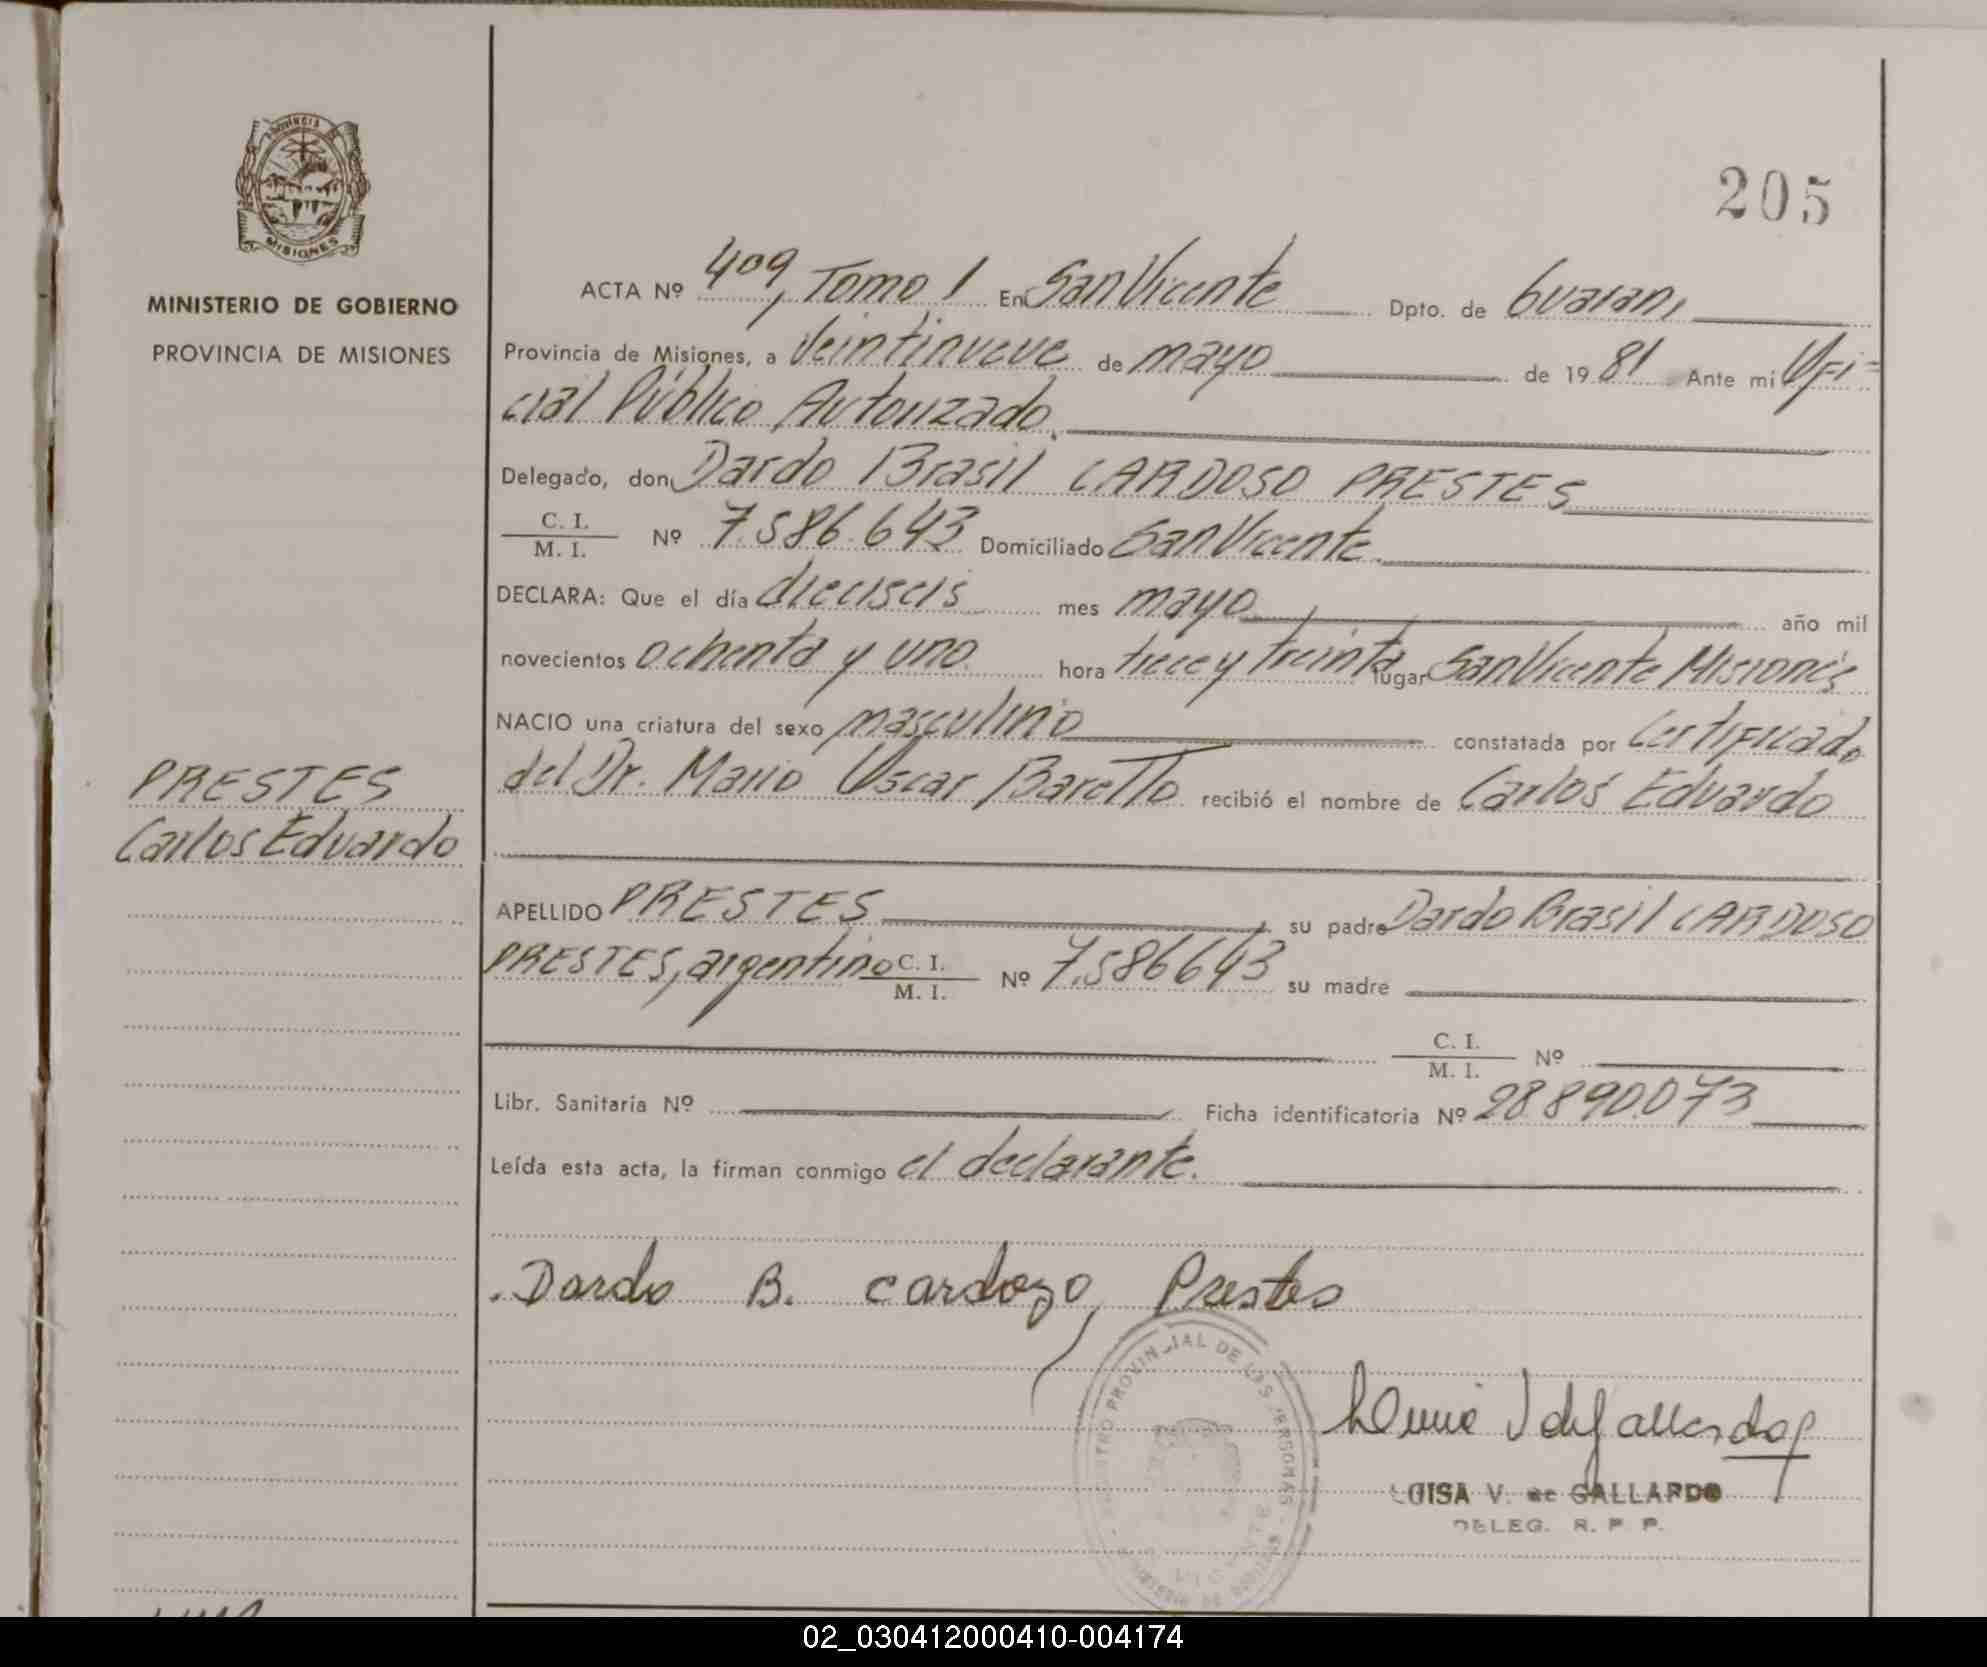 PROVINCIA DE
MISIONES
MINISTERIO DE GOBIERNO
PROVINCIA DE MISIONES
205
ACTA Nº 409, Tomo 1 En San Vicente Dpto. de Guarani
Provincia de Misiones, a Veintinueve de mayo de 1981 Ante mi Ofi=
cial Público Autorizado.
Delegado, don Dardo Brasil CARDOSO PRESTES
C. I. / M. I. Nº 7.586.643 Domiciliado San Vicente
DECLARA: Que el día dieciseis mes mayo año mil
novecientos ochenta y uno hora trece y treinta lugar San Vicente Misiones
NACIO una criatura del sexo masculino constatada por Certificado
del Dr. Mario Oscar Baretto recibió el nombre de Carlos Eduardo
PRESTES
Carlos Eduardo
APELLIDO PRESTES su padre Dardo Brasil CARDOSO
PRESTES, argentino C. I. / M. I. Nº 7.586643 su madre
C. I. / M. I. Nº
Libr. Sanitaria Nº Ficha identificatoria Nº 28.890.073
Leída esta acta, la firman conmigo el declarante.
Dardo B. Cardozo Prestes
REGISTRO PROVINCIAL DE LAS PERSONAS
LUISA V. de GALLARDO
DELEG. R. P. P.
02_030412000410-004174